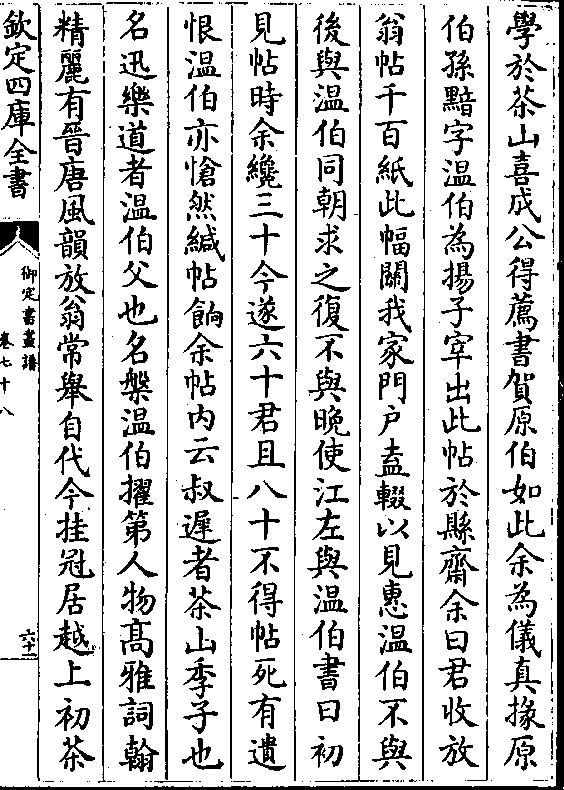 學於茶山喜成公得薦書賀原伯如此余為儀真掾原
伯孫黯字溫伯為揚子宰出此帖於縣齋余曰君收放
翁帖千百紙此幅關我家門戶盍輟以見惠溫伯不與
後與溫伯同朝求之復不與晚使江左與溫伯書曰初
見帖時余纔三十今遂六十君且八十不得帖死有遺
恨溫伯亦愴然緘帖餉余帖内云叔遲者茶山季子也
名迅樂道者溫伯父也名槃溫伯擢第人物髙雅詞翰
精麗有晉唐風韻放翁常舉自代今挂冠居越上初茶
欽定四庫全書
御定書畫譜
卷七十八
六十